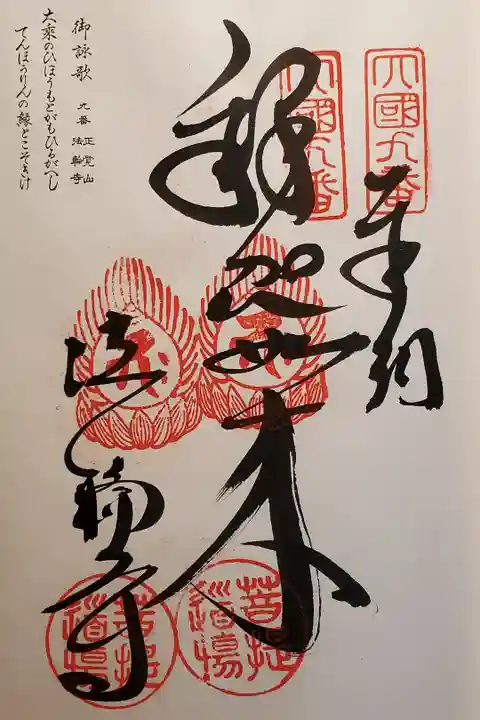 四國九番
四國九番
奉納
釋迦如来
法輪寺
菩提道場
菩提道場
御詠歌 九番 正覚山 法輪寺
大乗のひほうもとがもひるがへし
てんぼうりんの縁とこそきけ